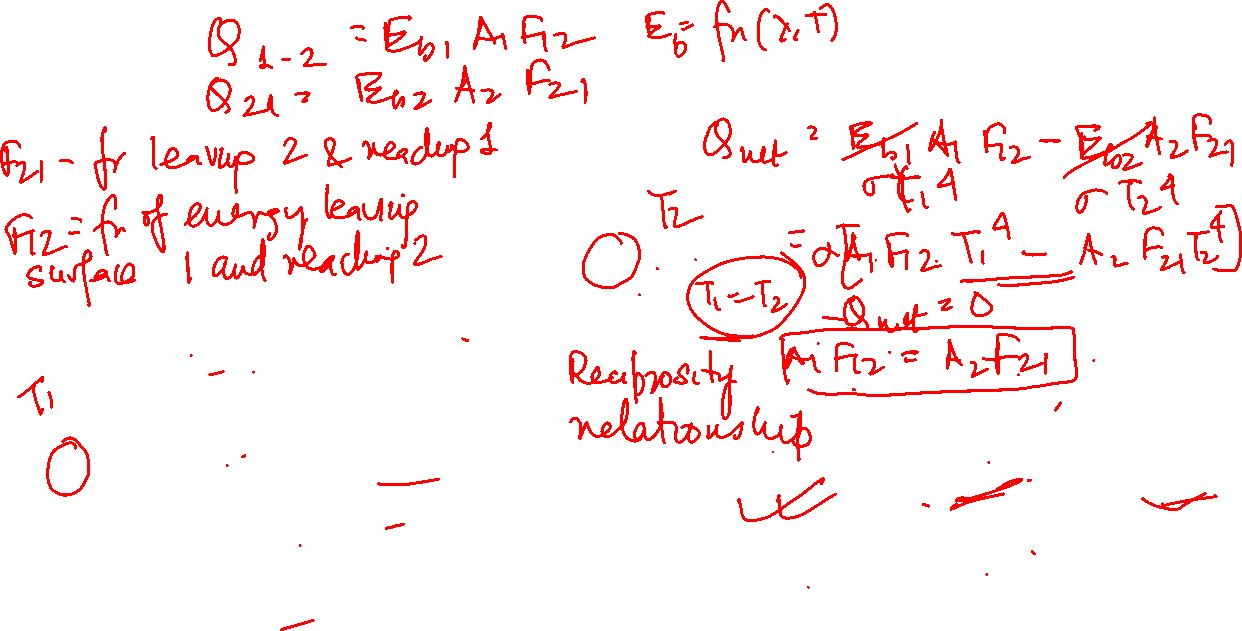 Q₁₋₂ = E_b₁ A₁ F₁₂
E_b = fn(λ, T)
Q₂₁ = E_b₂ A₂ F₂₁
F₂₁ - fr leaving 2 & reaching 1
F₁₂ = fr of energy leaving
surface 1 and reaching 2
Q net = E_b₁ A₁ F₁₂ - E_b₂ A₂ F₂₁
σT₁⁴ σT₂⁴
= σ[A₁ F₁₂ T₁⁴ - A₂ F₂₁ T₂⁴]
T₂
T₁ = T₂
Q net = 0
Reciprosity
relationship
A₁ F₁₂ = A₂ F₂₁
T₁